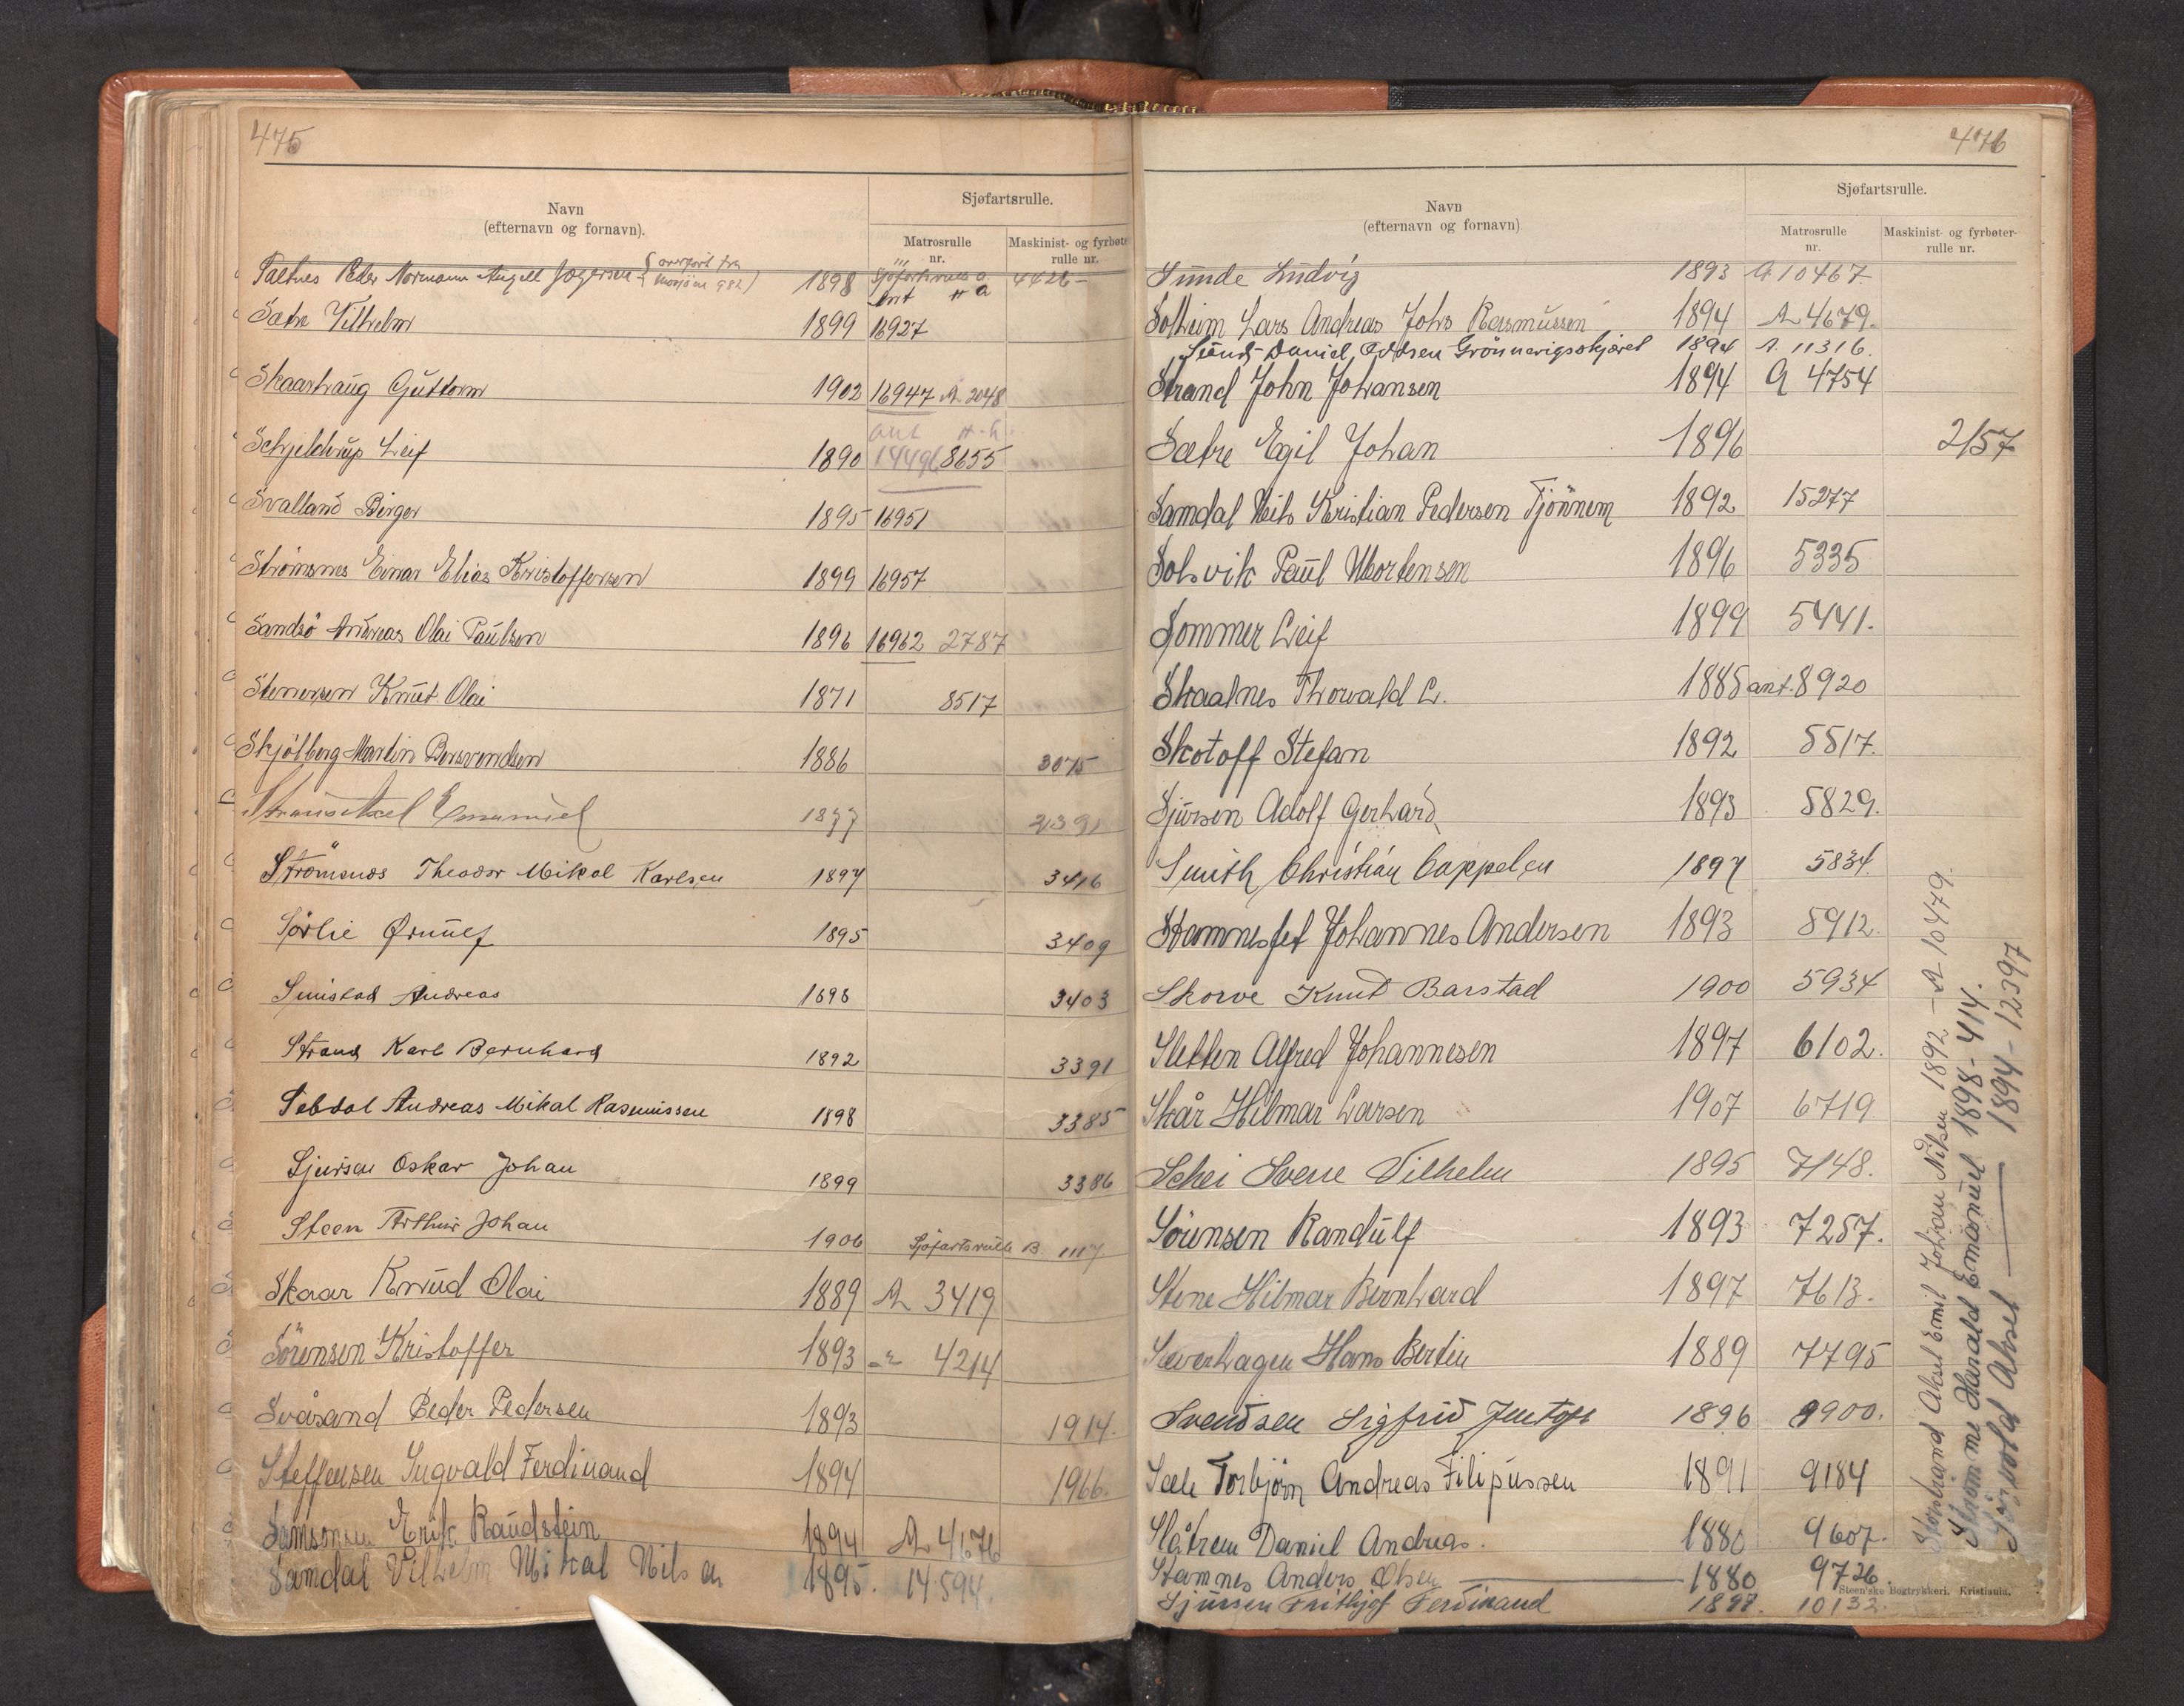 475
Navn
(efternavn og fornavn).
Sjøfartsrulle.
Matrosrulle
nr.
Maskinist- og fyrbøter
rulle nr.
Peder Normann Angell Jørgensen (overført fra 1898 Sjøfartsrulle a 4426 -
Mosjøen 982) ant # a
Sætre Vilhelm 1899 16927
Skaarhaug Guttorm 1902 16947 A 2048
ant # h.
Schjelderup Leif 1890 14496 8655
Svalland Birger 1895 16951
Strömsnes Einar Elias Kristoffersen 1899 16957
Sandsö Andreas Olai Paulsen 1896 16962 2787
Stenersen Knut Olai 1871 8517
Skjölberg Martin Bersvendsen 1886 3075
Emanuel 1877 2391
Strömsnes Theodor Mikal Karlsen 1897 3416
Sörlie Ørnulf 1895 3409
Andreas 1898 3403
Strand Karl Bernhard 1892 3391
Sebdal Andreas Mikal Rasmussen 1898 3385
Sjursen Oskar Johan 1899 3386
Steen Arthur Johan 1906 Sjøfartsrulle B. 1117
Skaar Knud Olai 1889 A 3419
Sörensen Kristoffer 1893 -"- 4214
Svåsand Peder Pedersen 1893 1914.
Steffensen Ingvald Ferdinand 1894 1966.
Samsonsen Erik Raudstein 1894 A 4676
Samdal Vilhelm Mikal Nilsen 1895. 14594.
476
Navn
(efternavn og fornavn)
Sjøfartsrulle.
Matrosrulle
nr.
Maskinist- og fyrbøter-
rulle nr.
Sunde Ludvig 1893 A 10467.
Solheim Lars Andreas Johs Rasmussen 1894 A 4679.
Sund Daniel Oddsen Grönnevigsskjæret 1894 A. 11316.
Strand John Johansen 1894 A 4754
Sætre Egil Johan 1896 2157
Samdal Nils Kristian Pedersen Tjönnem 1892 15277
Solsvik Paul Mortensen 1896 5335
Sommer Leif 1899 5441.
Skaalnes Thorvald L. 1885 ant. 8920
Skotoff Stefan 1892 5517.
Sjursen Adolf Gerhard 1893 5829.
Smith Christian Cappelen 1897 5834.
Stamnesfet Johannes Andersen 1893 5912.
Skorve Knut Barstad 1900 5934
Sletten Alfred Johannesen 1897 6102.
Skår Hilmar Larsen 1907 6719
Schei Sverre Vilhelm 1895 7148.
Sörensen Randulf 1893 7257.
Stene Hilmar Bernhard 1897 7613.
Severhagen Hans Bertin 1889 7795
Svendsen Sigfrid Jentoft 1896 8900.
Sæle Torbjörn Andreas Filipussen 1891 9184
Slåtrem Daniel Andreas. 1880 9607.
Stamnes Anders Olsen 1880 9726.
Sjursen Fritjof Ferdinand 1897. 10132.
Steen'ske Bogtrykkeri. Kristiania.
Storstrand Aksel Emil Johan Nilsen 1892 - A 10479.
Strømme Harald Emanuel 1898 - 414.
Sörvold Aksel 1894 - 12397